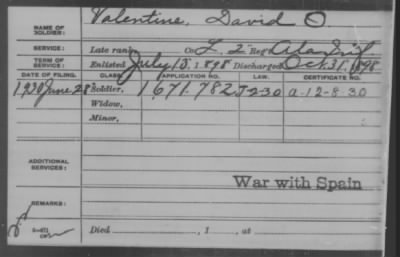 Valentine, David O
NAME OF SOLDIER:
SERVICE: Late rank, Co. L, 2" Reg't Ala Inf
TERM OF SERVICE: Enlisted July 15, 1898 Discharged Oct. 31, 1898
DATE OF FILING. CLASS. APPLICATION NO. LAW. CERTIFICATE NO.
1930 June 28 Soldier, 1671.782 J-2-30 a-12-8-30
Widow,
Minor,
ADDITIONAL SERVICES:
War with Spain
REMARKS:
Died , 1 , at